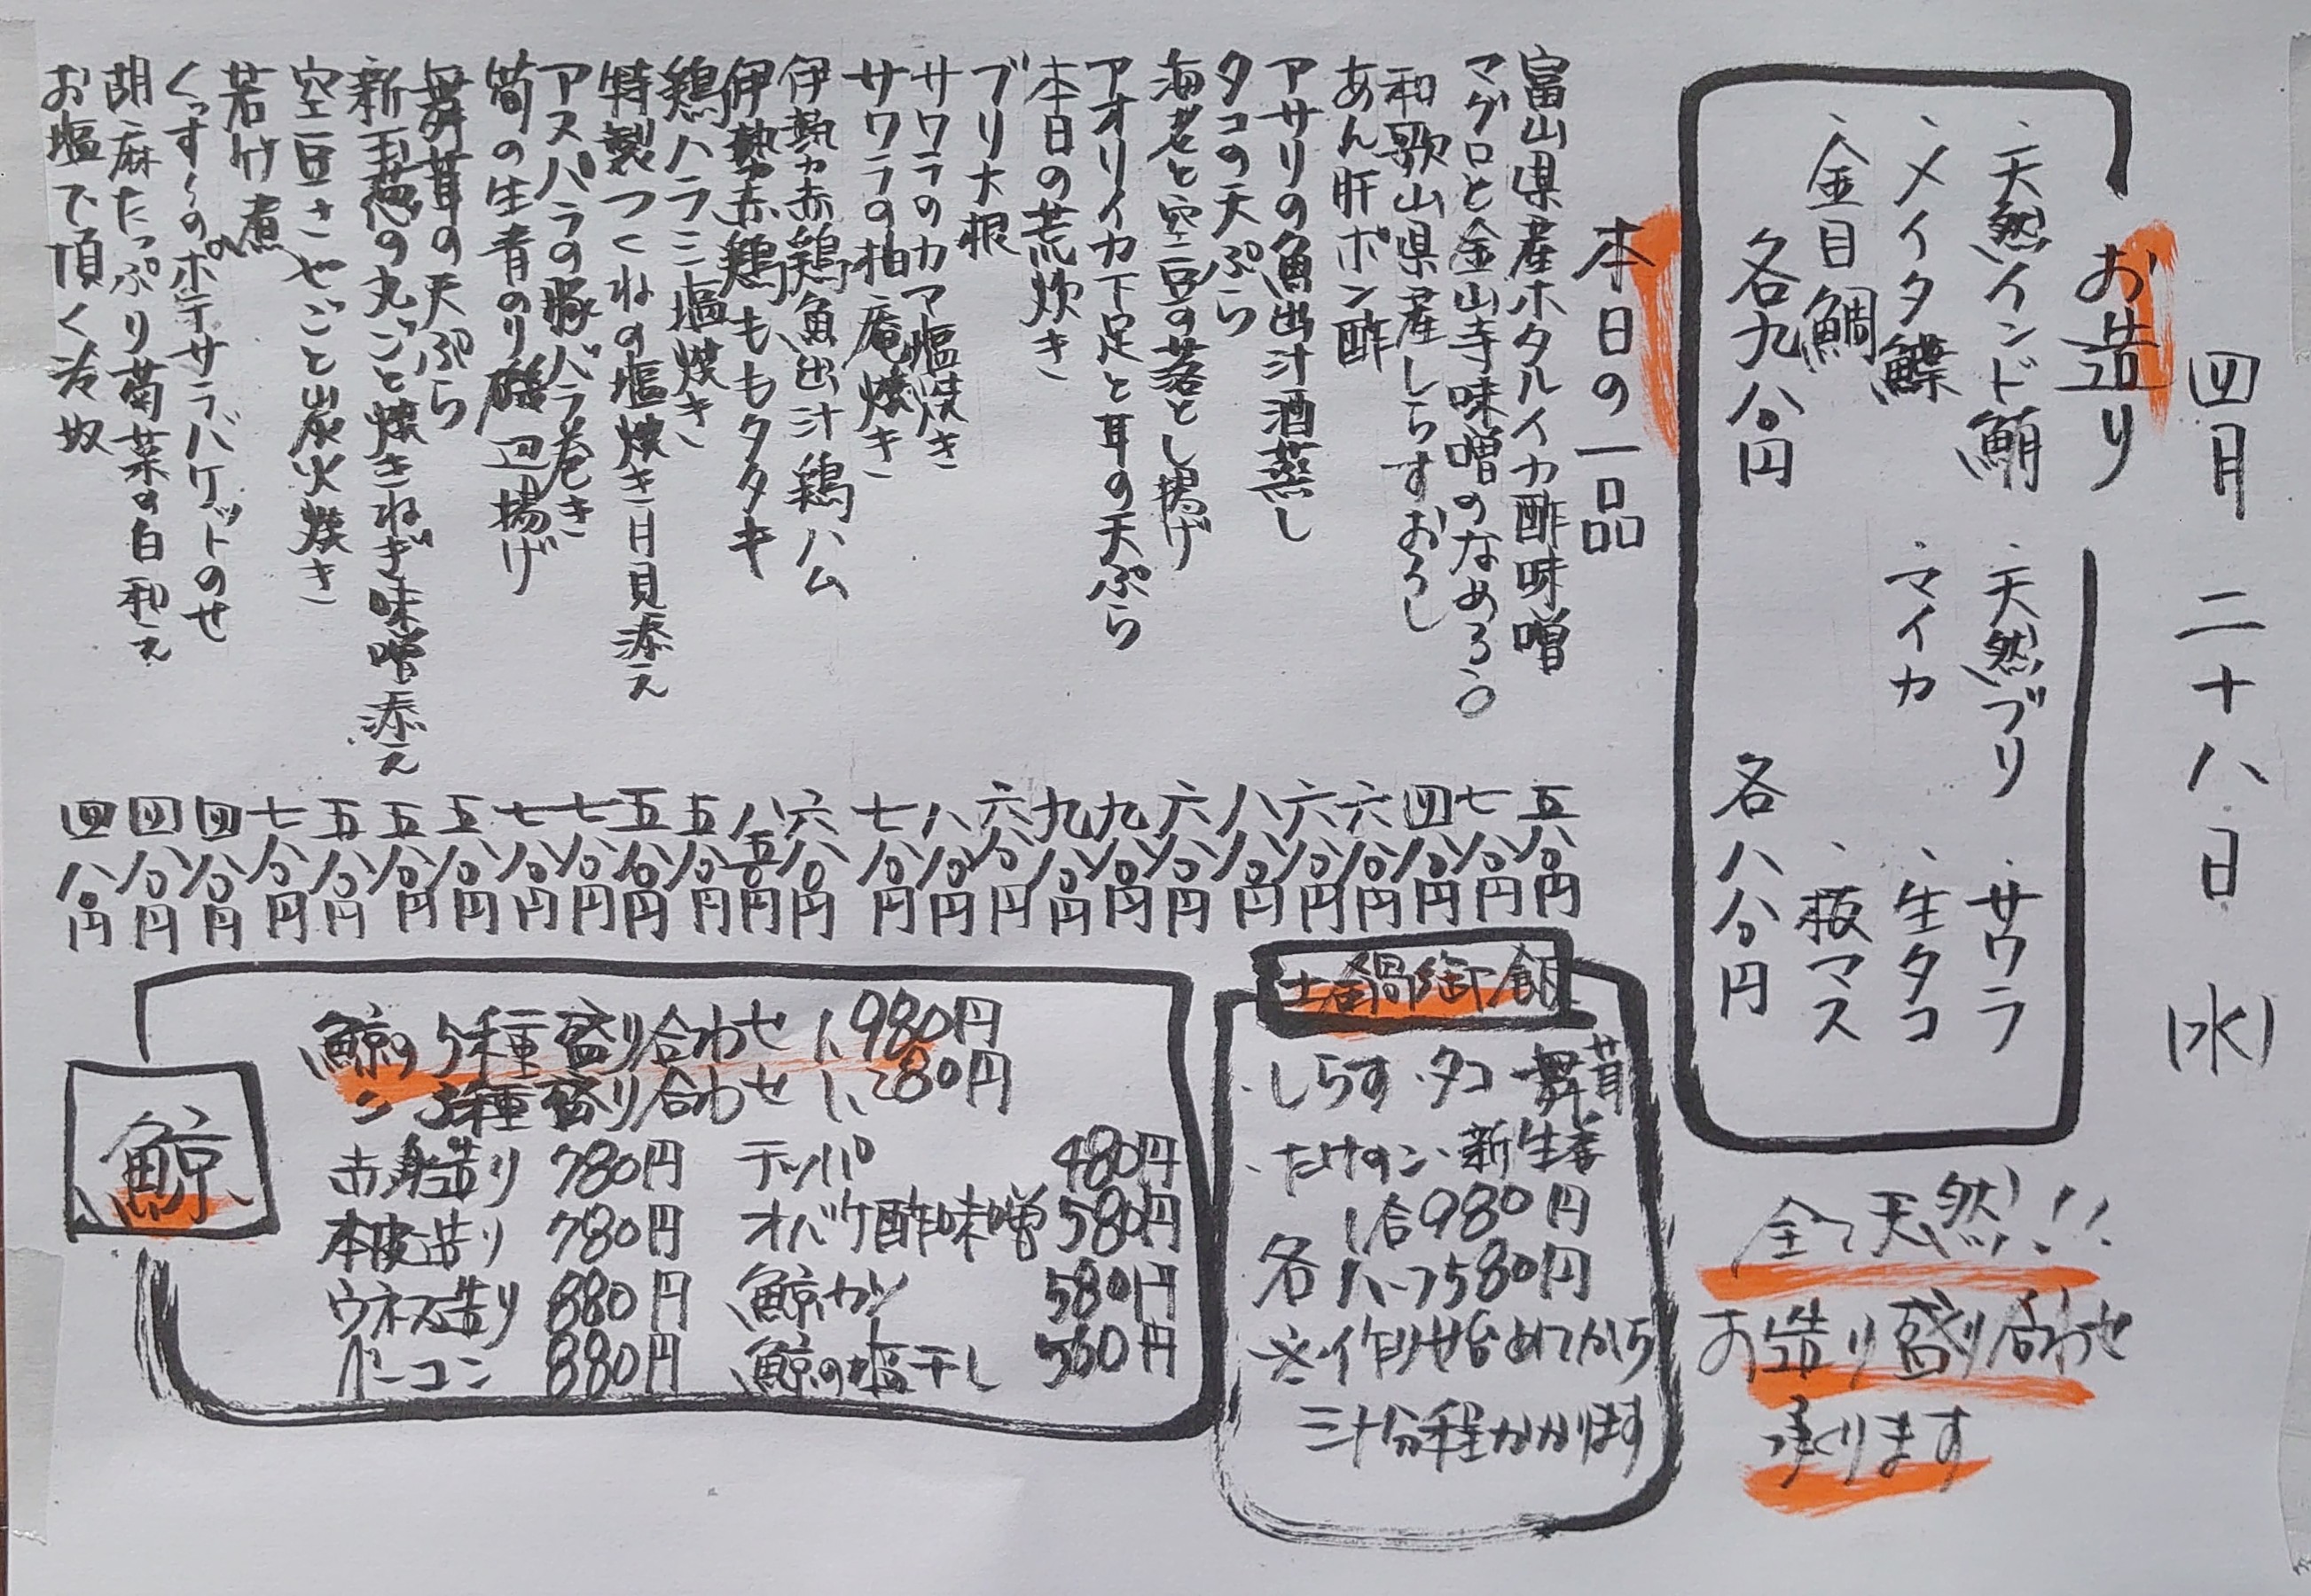 四月二十八日(水)
お造り
・天然インド鮪 ・天然ブリ ・サワラ
・メイタ鰈 ・マイカ ・生タコ
・金目鯛 ・板マス
各九八〇円 各八八〇円
全て天然!!
お造り盛り合わせ
承ります
本日の一品
富山県産ホタルイカ酢味噌 五八〇円
マグロと金山寺味噌のなめろう 七八〇円
和歌山県産しらすおろし 四八〇円
あん肝ポン酢 六八〇円
アサリの魚出汁酒蒸し 六八〇円
タコの天ぷら 八八〇円
海老と空豆の落とし揚げ 六八〇円
アオリイカ下足と耳の天ぷら 九八〇円
本日の荒炊き 九八〇円
ブリ大根 六八〇円
サワラのカマ塩焼き 八八〇円
サワラの柚庵焼き 七八〇円
伊勢赤鶏魚出汁鶏ハム 六八〇円
伊勢赤鶏ももタタキ 八五〇円
鶏ハラミ塩焼き 五八〇円
特製つくねの塩焼き月見添え 五八〇円
アスパラの豚バラ巻き 七八〇円
筍の生青のり磯辺揚げ 七八〇円
舞茸の天ぷら 五八〇円
新玉葱の丸ごと焼きねぎ味噌添え 五八〇円
空豆さやごと炭火焼き 五八〇円
若竹煮 七八〇円
くっすんのポテサラバケットのせ 四八〇円
胡麻たっぷり菊菜の白和え 四八〇円
お塩で頂く冷奴 四八〇円
土鍋御飯
・しらす・タコ・舞茸
・たけのこ・新生姜
各 1合980円
ハーフ580円
※作り始めてから
三十分程かかります
鯨
鯨の5種盛り合わせ 1,980円
〃 3種盛り合わせ 1,280円
赤身造り 780円 テッパ 480円
本皮造り 780円 オバケ酢味噌 580円
ウネス造り 880円 鯨カツ 580円
ベーコン 880円 鯨の塩干し 560円